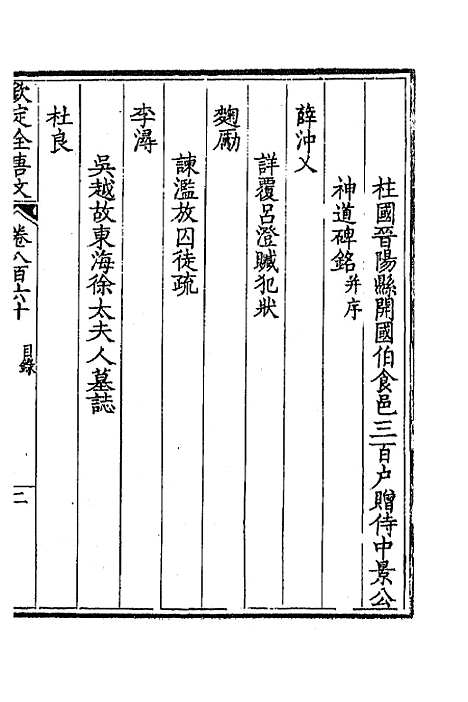 柱國晉陽縣開國伯食邑三百户贈侍中景公
神道碑銘并序
薛沖乂
詳覆呂澄贓犯狀
麴勵
諫濫放囚徒疏
李潯
吳越故東海徐太夫人墓誌
杜良
欽定全唐文 卷八百六十 目錄 二